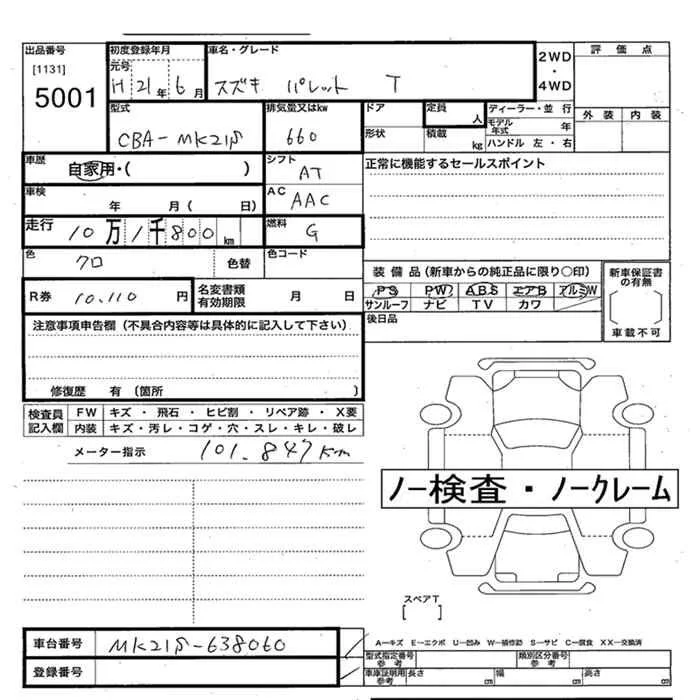 出品番号
[1131]
5001
初度登録年月
元号
H 21 年 6 月
車名・グレード
スズキ パレット T
2WD
・
4WD
評価点
外装 内装
型式
CBA-MK21S
排気量又はkw
660
ドア
形状
定員
人
積載
kg
ディーラー・並行
モデル年式 年
ハンドル 左・右
車歴
自家用・( )
シフト
AT
正常に機能するセールスポイント
車検
年 月 ( 日)
AC
AAC
走行
10万1千800km
燃料
G
色
クロ
色替
色コード
装備品(新車からの純正品に限り○印)
PS PW ABS エアB アルミW
サンルーフ ナビ TV カワ
新車保証書の有無
[ ]
車載不可
R券 10,110円
名変書類有効期限 月 日
後日品
注意事項申告欄(不具合内容等は具体的に記入して下さい)
修復歴 有 (箇所 )
検査員記入欄
FW キズ・飛石・ヒビ割・リペア跡・X要
内装 キズ・汚レ・コゲ・穴・スレ・キレ・破レ
メーター指示 101,847km
ノー検査・ノークレーム
スペアT
[ ]
車台番号 MK21S-638060
登録番号
A-キズ E-エクボ U-凹み W-補修跡 S-サビ C-腐食 XX-交換済
型式指定番号参考
類別区分番号参考
車庫証明用参考 長さ cm 幅 cm 高さ cm